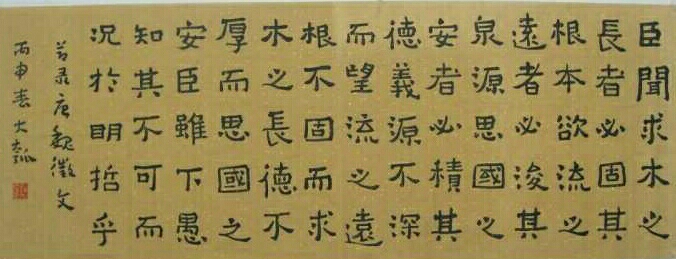 臣聞求木之
長者必固其
根本欲流之
遠者必浚其
泉源思國之
安者必積其
德義源不深
而望流之遠
根不固而求
木之長德不
厚而思國之
安臣雖下愚
知其不可而
况於明哲乎
节录唐魏徵文
丙申春大瓠